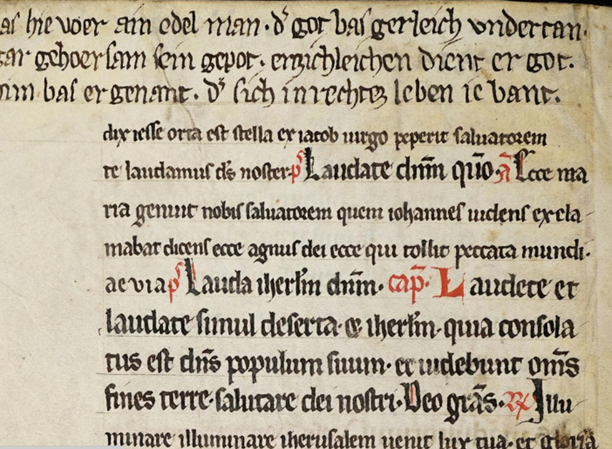 as hie voer ain edel man · d᷑ got bas gerleich vndertan ·
gar gehoersam sein gepot · erzichleichen dient er got ·
nim bas er genant · d᷑ sich in rechtez leben ie vant ·
dix iesse orta est stella ex iacob uirgo peperit saluatorem
te laudamus ds̄ noster · p̄s Laudate dnm̄ quō · ā Ecce ma
ria genuit nobis saluatorem quem iohannes uidens excla-
mabat dicens ecce agnus dei ecce qui tollit peccata mundi ·
aeuia p̄s Lauda iherlm̄ dnm̄ · cap̄ · Laudete et
laudate simul deserta · & iherlm̄ · quia consola
tus est dns̄ populum suum · et uidebunt oms̄
fines terre · salutare dei nostri · Deo grās · ℞ Illu
minare illuminare iherusalem uenit lux tua · et gloria